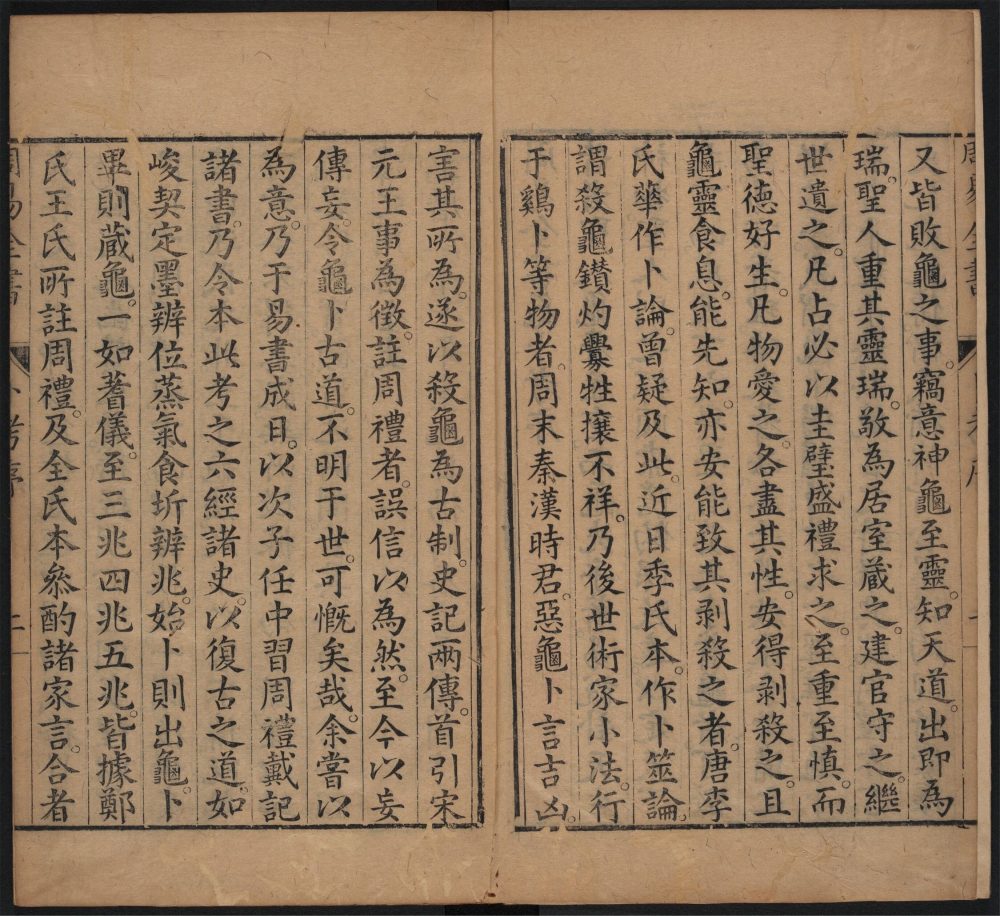 又皆敗龜之事。竊意神龜至靈。知天道。出即為
瑞。聖人重其靈瑞。敬為居室蔵之。建官守之。繼
世遺之。凡占必以圭璧盛禮求之。至重至慎。而
聖德好生。凡物愛之。各盡其性。安得剥殺之。且
龜靈食息。能先知。亦安能致其剥殺之者。唐李
氏華作卜論。曾疑及此。近日季氏本。作卜筮論。
謂殺龜鑚灼釁牲攘不祥。乃後世術家小法。行
于鷄卜等物者。周末秦漢時君。惡龜卜言吉凶。
害其所為。遂以殺龜為古制。史記兩傳。首引宋
元王事為徴。註周禮者。誤信以為然。至今以妄
傳妄。令龜卜古道。不明于世。可慨矣哉。余嘗以
為意。乃于易書成日。以次子任中習周禮戴記
諸書。乃令本此考之六經諸史。以復古之道。如
峻契定墨辨位蒸氣食坼辨兆。始卜則出龜。卜
畢則蔵龜。一如蓍儀。至三兆四兆五兆。皆據鄭
氏王氏所註周禮。及全氏本叅酌諸家言。合者
卜考序
二